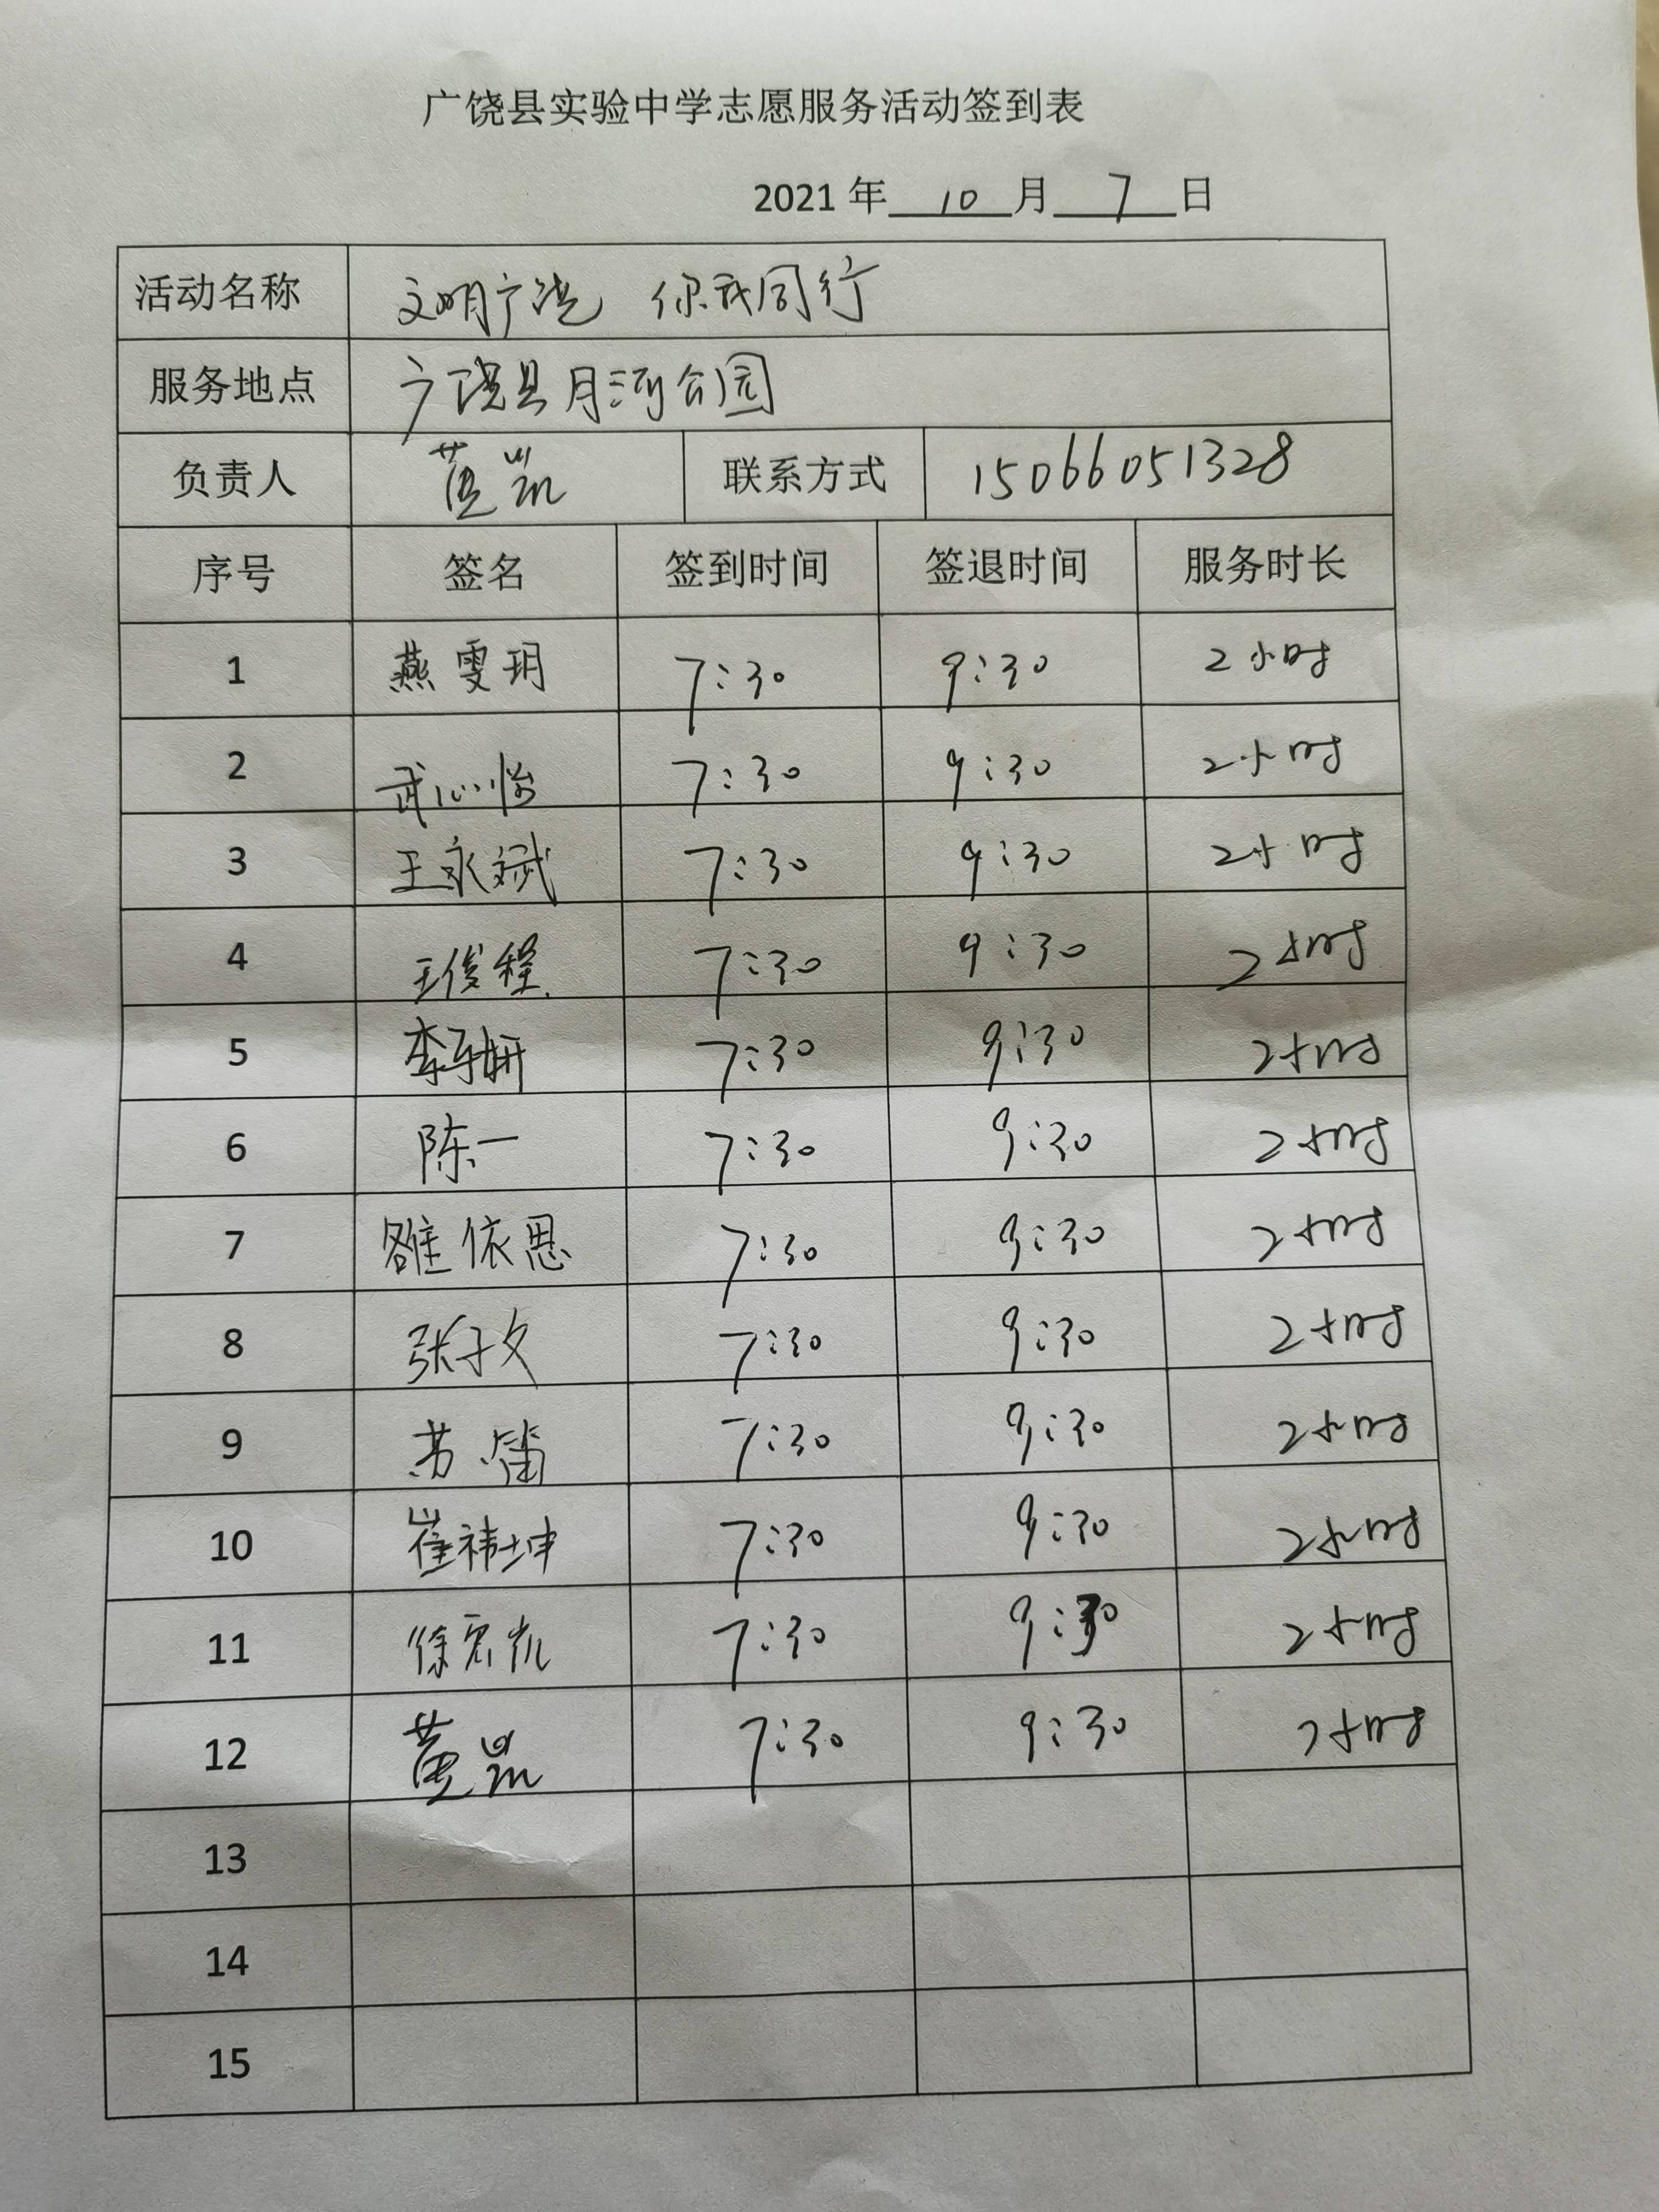 广饶县实验中学志愿服务活动签到表
2021 年 10 月 7 日
活动名称 文明广饶 你我同行
服务地点 广饶县月河公园
负责人 黄凯 联系方式 15066051328
序号 签名 签到时间 签退时间 服务时长
1 燕雯玥 7:30 9:30 2小时
2 武心怡 7:30 9:30 2小时
3 王永斌 7:30 9:30 2小时
4 王俊程 7:30 9:30 2小时
5 李子妍 7:30 9:30 2小时
6 陈一 7:30 9:30 2小时
7 依恩 7:30 9:30 2小时
8 张子文 7:30 9:30 2小时
9 苏笛 7:30 9:30 2小时
10 崔祎坤 7:30 9:30 2小时
11 徐宏凯 7:30 9:30 2小时
12 黄凯 7:30 9:30 2小时
13
14
15